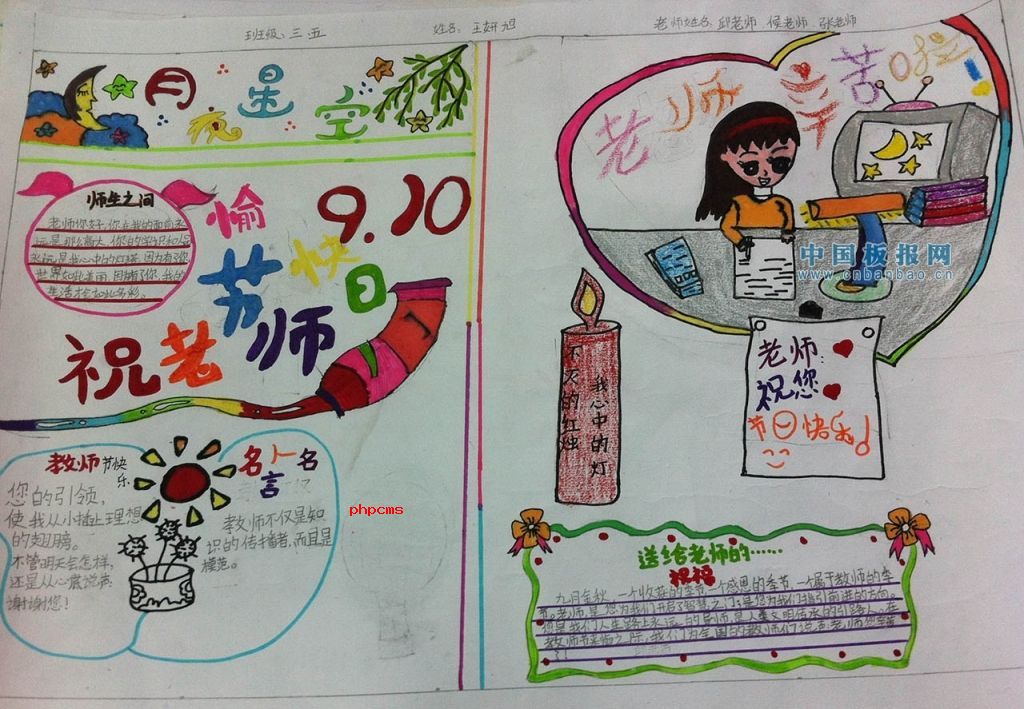 班级：三五
姓名：王妍旭
老师姓名：邱老师 侯老师 张老师
月亮星空
师生之间
老师你好，你在我的面前永
远是那么高大，你的学识和人
永远是我心中的灯塔，因为有了你
世界如此美丽，因拥有了你，我的
生活才会如此多彩。
9.10
祝老师节日愉快
老师辛苦啦
中国板报网
www.cnbanbao.cn
不灭的红烛
我心中的灯
老师：
祝您
节日快乐！
教师节快乐
您的引领，
使我从小插上理想
的翅膀。
不管明天会怎样，
还是从心底说声：
谢谢您！
名人名言
教师不仅是知
识的传播者，而且是
模范。
phpcms
送给老师的……
祝福
九月金秋，一个收获的季节，一个感恩的季节，一个属于教师的季
节。老师，是您为我们开启了智慧之门；是您为我们指引前进的方向。
您是我们人生路上永远的导师，是人类文明传承的引路人。在
教师节来临之际，我们为全国的教师们说声老师您辛苦
了！